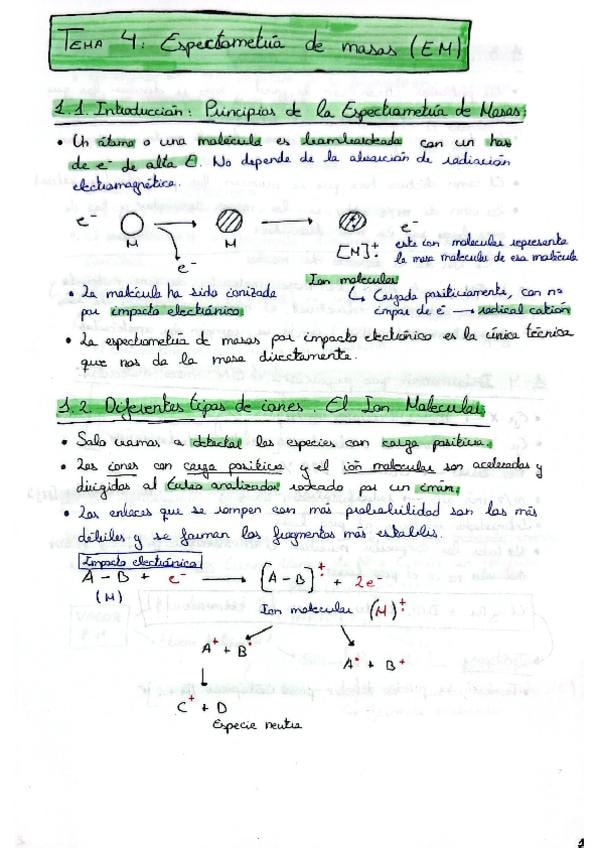 TEMA 4: Espectometría de masas (EM)
1.1. Introducción: Principios de la Espectrometría de Masas:
• Un átomo o una molécula es bombardeada con un haz
de e⁻ de alta E. No depende de la absorción de radiación
electromagnética.
e⁻ M e⁻ M [M]⁺· e⁻
este ion molecular representa
la masa molecular de esa molécula
Ion molecular
↳ Cargada positivamente, con nº
impar de e⁻ → radical catión
• La molécula ha sido ionizada
por impacto electrónico
• La espectometría de masas por impacto electrónico es la única técnica
que nos da la masa directamente.
1.2. Diferentes tipos de iones. El Ion Molecular.
• Solo vamos a detectar las especies con carga positiva.
• Los iones con carga positiva y el ión molecular son acelerados y
dirigidos al tubo analizador rodeado por un imán.
• Los enlaces que se rompen con más probabilidad son los más
débiles y se forman los fragmentos más estables.
Impacto electrónico
A - B + e⁻ → [A - B]⁺· + 2e⁻
(M)
Ion molecular (M)⁺·
A⁺ + B· A· + B⁺
C⁺ + D
Especie neutra
1